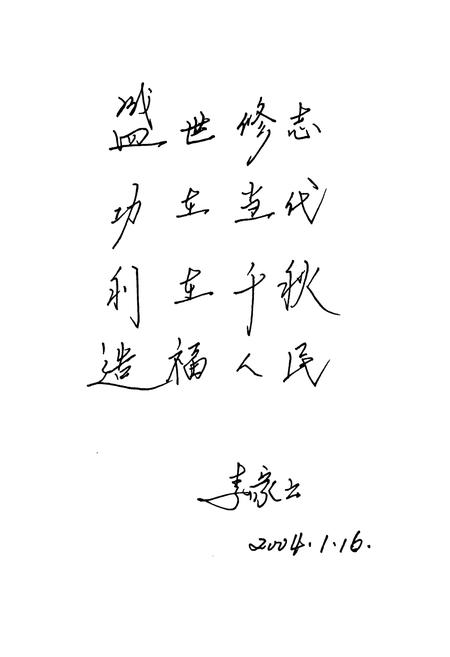 盛世修志
功在当代
利在千秋
造福人民
李家云
2004.1.16.